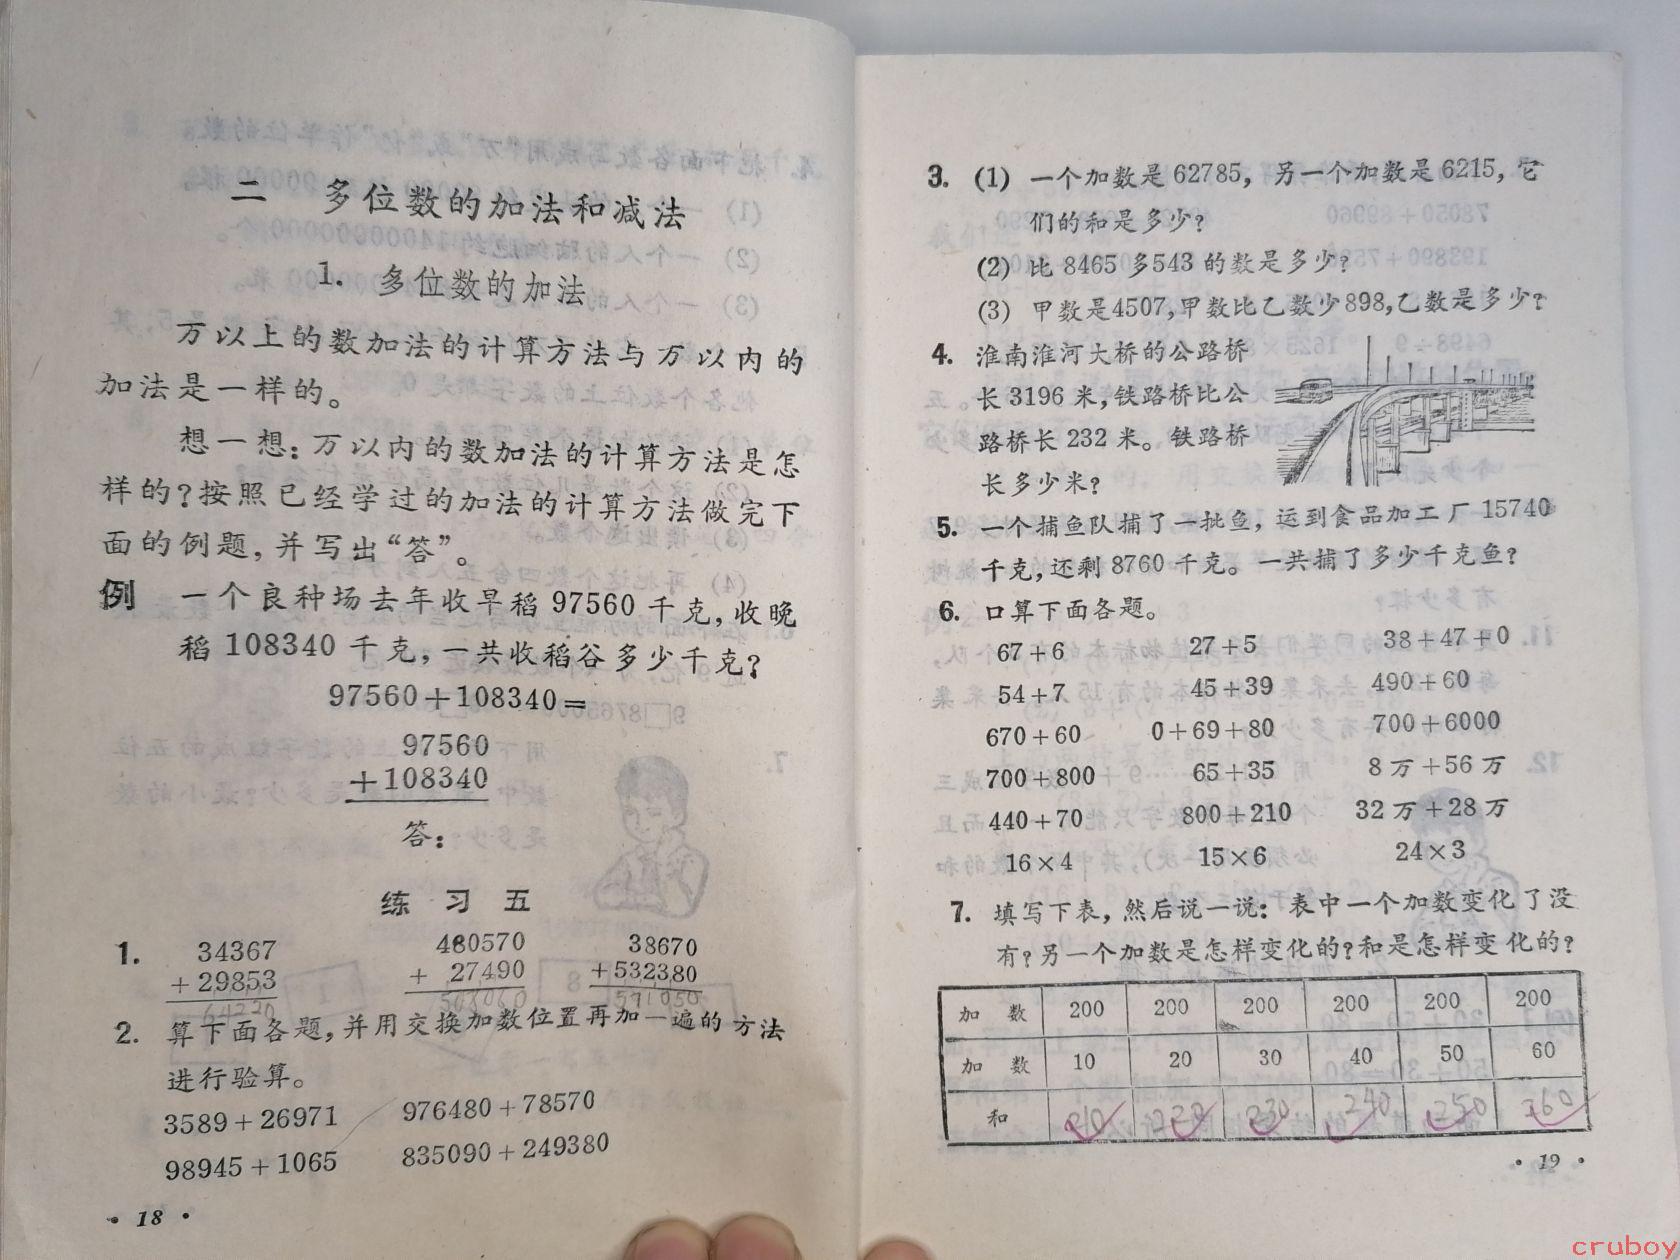 二 多位数的加法和减法
1. 多位数的加法
万以上的数加法的计算方法与万以内的
加法是一样的。
想一想：万以内的数加法的计算方法是怎
样的？按照已经学过的加法的计算方法做完下
面的例题，并写出“答”。
例 一个良种场去年收早稻 97560 千克，收晚
稻 108340 千克，一共收稻谷多少千克？
97560＋108340＝
97560
＋108340
答：
练 习 五
1. 34367 480570 38670
＋29853 ＋ 27490 ＋532380
64220 508060 571050
2. 算下面各题，并用交换加数位置再加一遍的方法
进行验算。
3589＋26971 976480＋78570
98945＋1065 835090＋249380
· 18 ·
3. (1) 一个加数是 62785，另一个加数是 6215，它
们的和是多少？
(2) 比 8465 多543 的数是多少？
(3) 甲数是4507，甲数比乙数少898，乙数是多少？
4. 淮南淮河大桥的公路桥
长 3196 米，铁路桥比公
路桥长 232 米。铁路桥
长多少米？
5. 一个捕鱼队捕了一批鱼，运到食品加工厂 15740
千克，还剩 8760 千克。一共捕了多少千克鱼？
6. 口算下面各题。
67＋6 27＋5 38＋47＋0
54＋7 45＋39 490＋60
670＋60 0＋69＋80 700＋6000
700＋800 65＋35 8万＋56万
440＋70 800＋210 32万＋28万
16×4 15×6 24×3
7. 填写下表，然后说一说：表中一个加数变化了没
有？另一个加数是怎样变化的？和是怎样变化的？
加 数 200 200 200 200 200 200
加 数 10 20 30 40 50 60
和 210 220 230 240 250 260
· 19 ·
cruboy